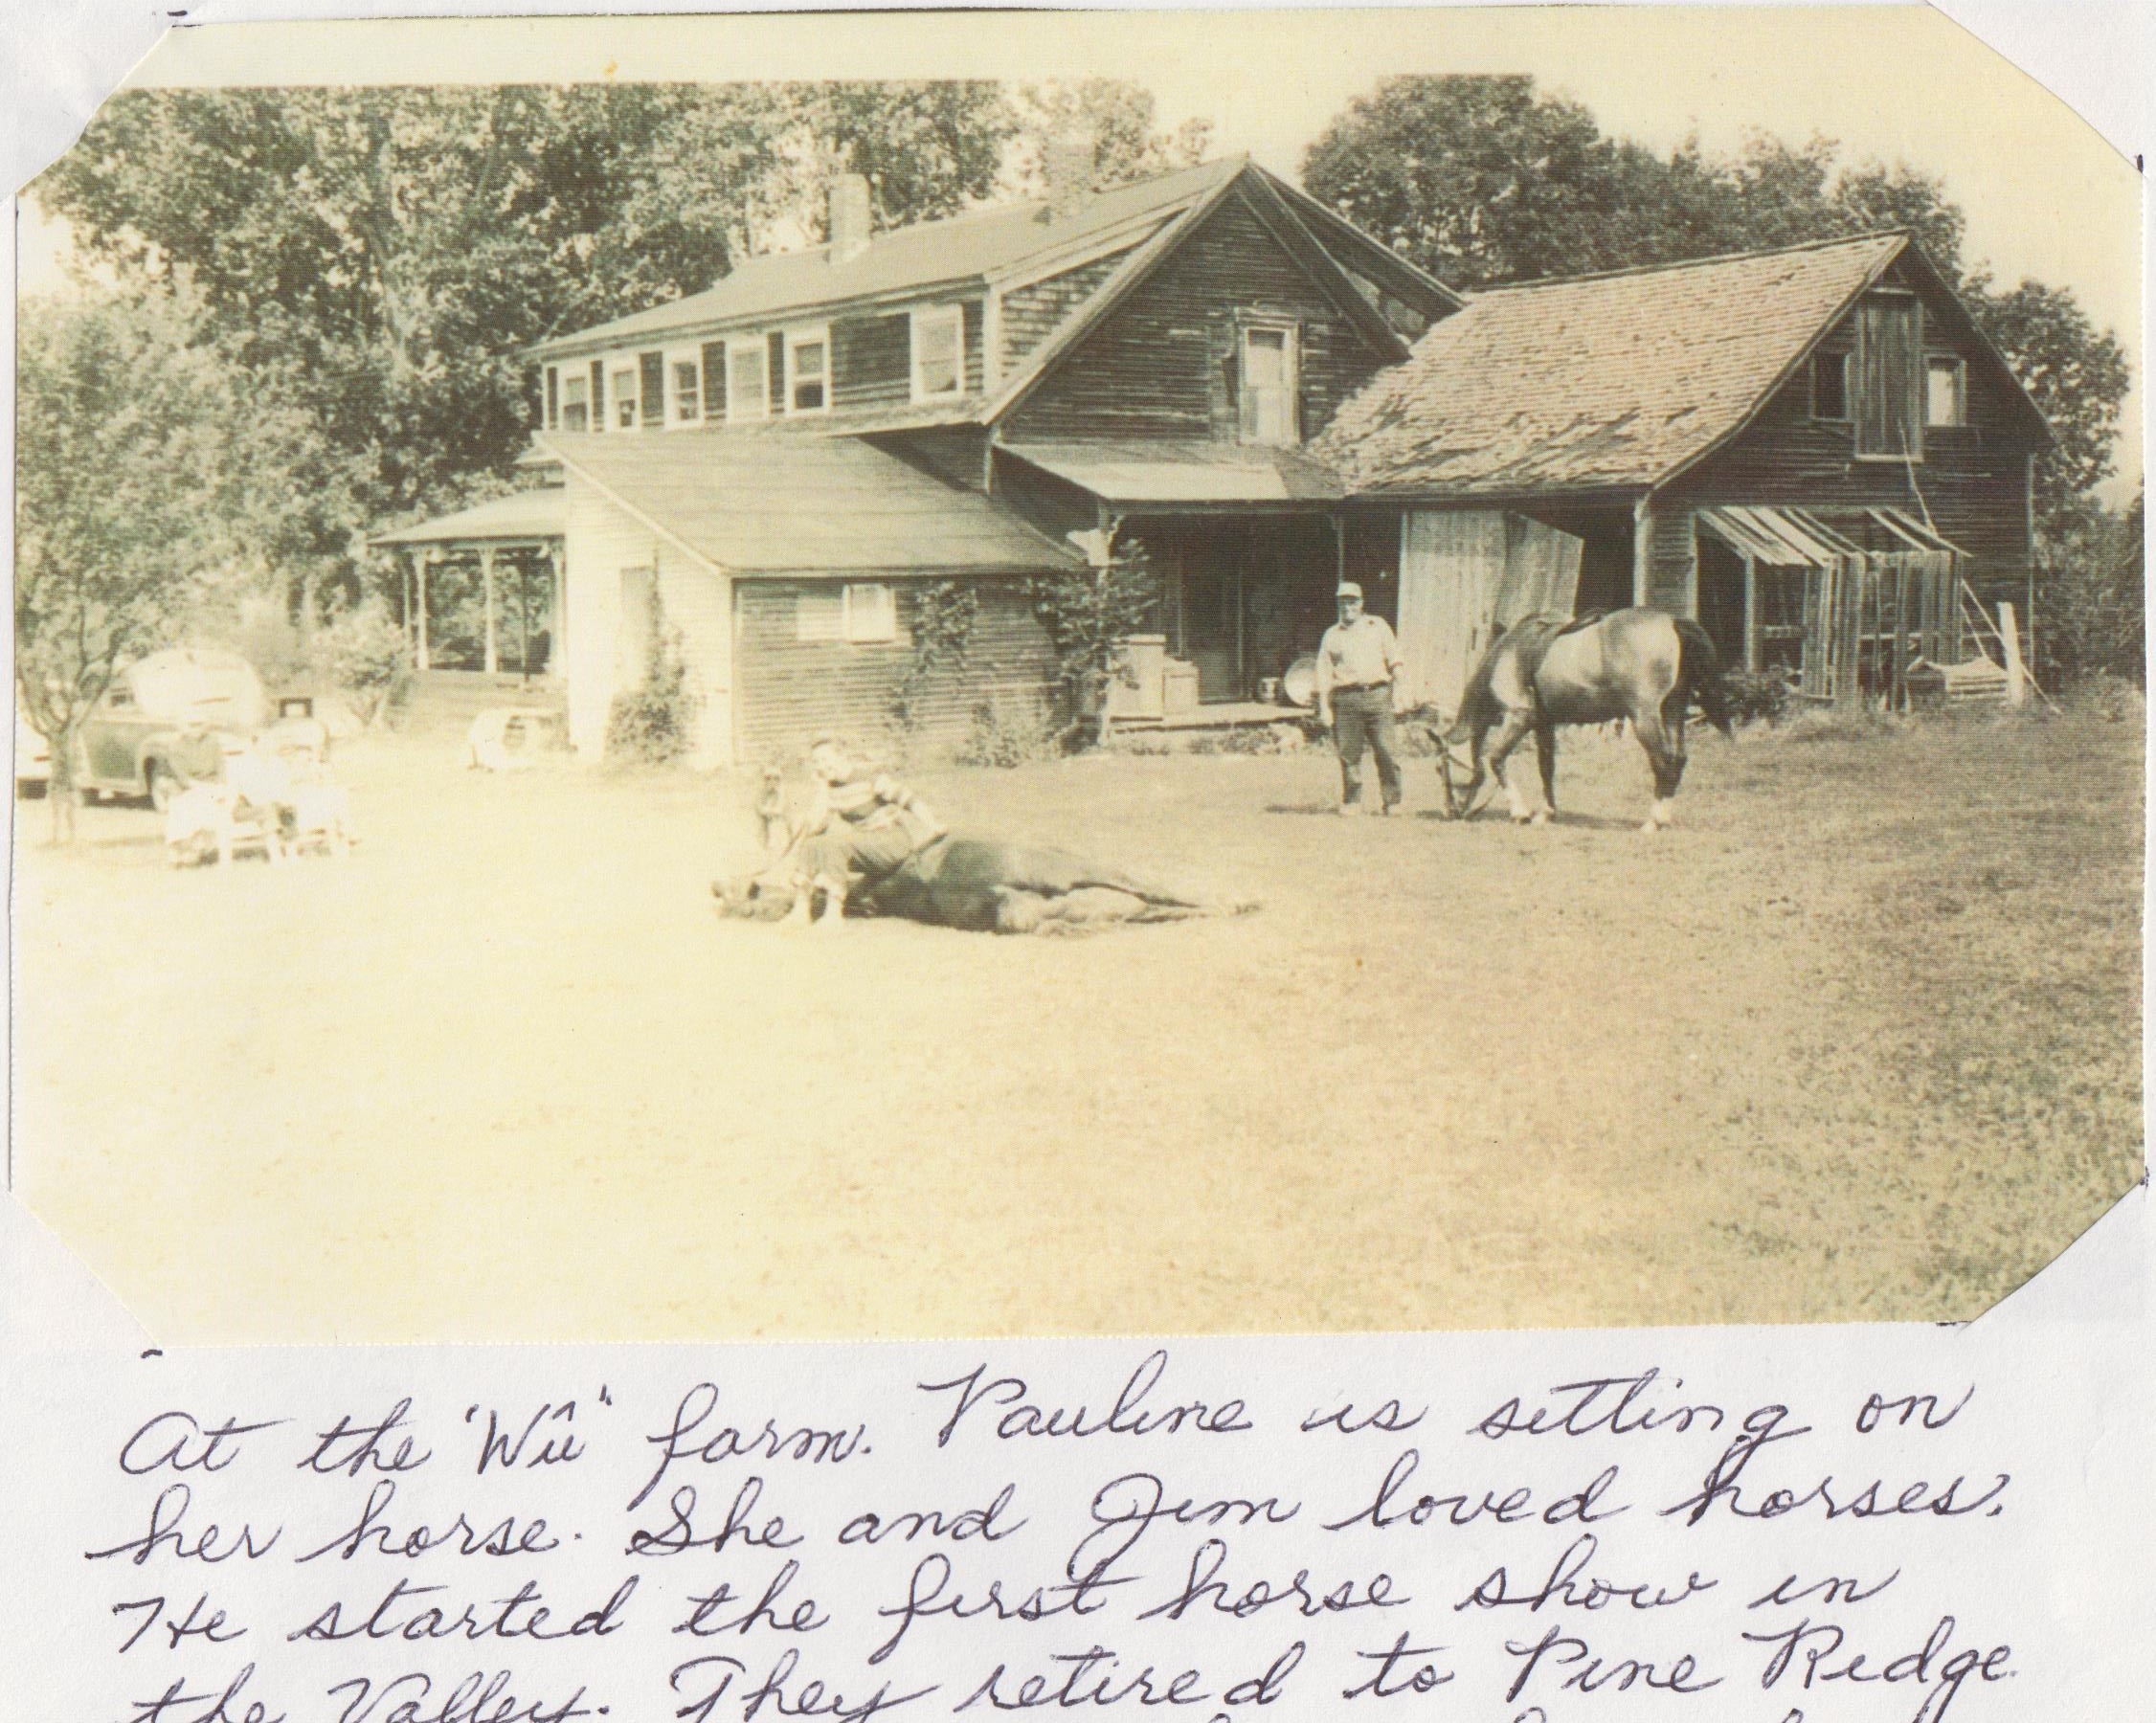 At the "Wû" farm. Pauline is setting on
her horse. She and Jim loved horses.
He started the first horse show in
the Valley. They retired to Pine Ridge.